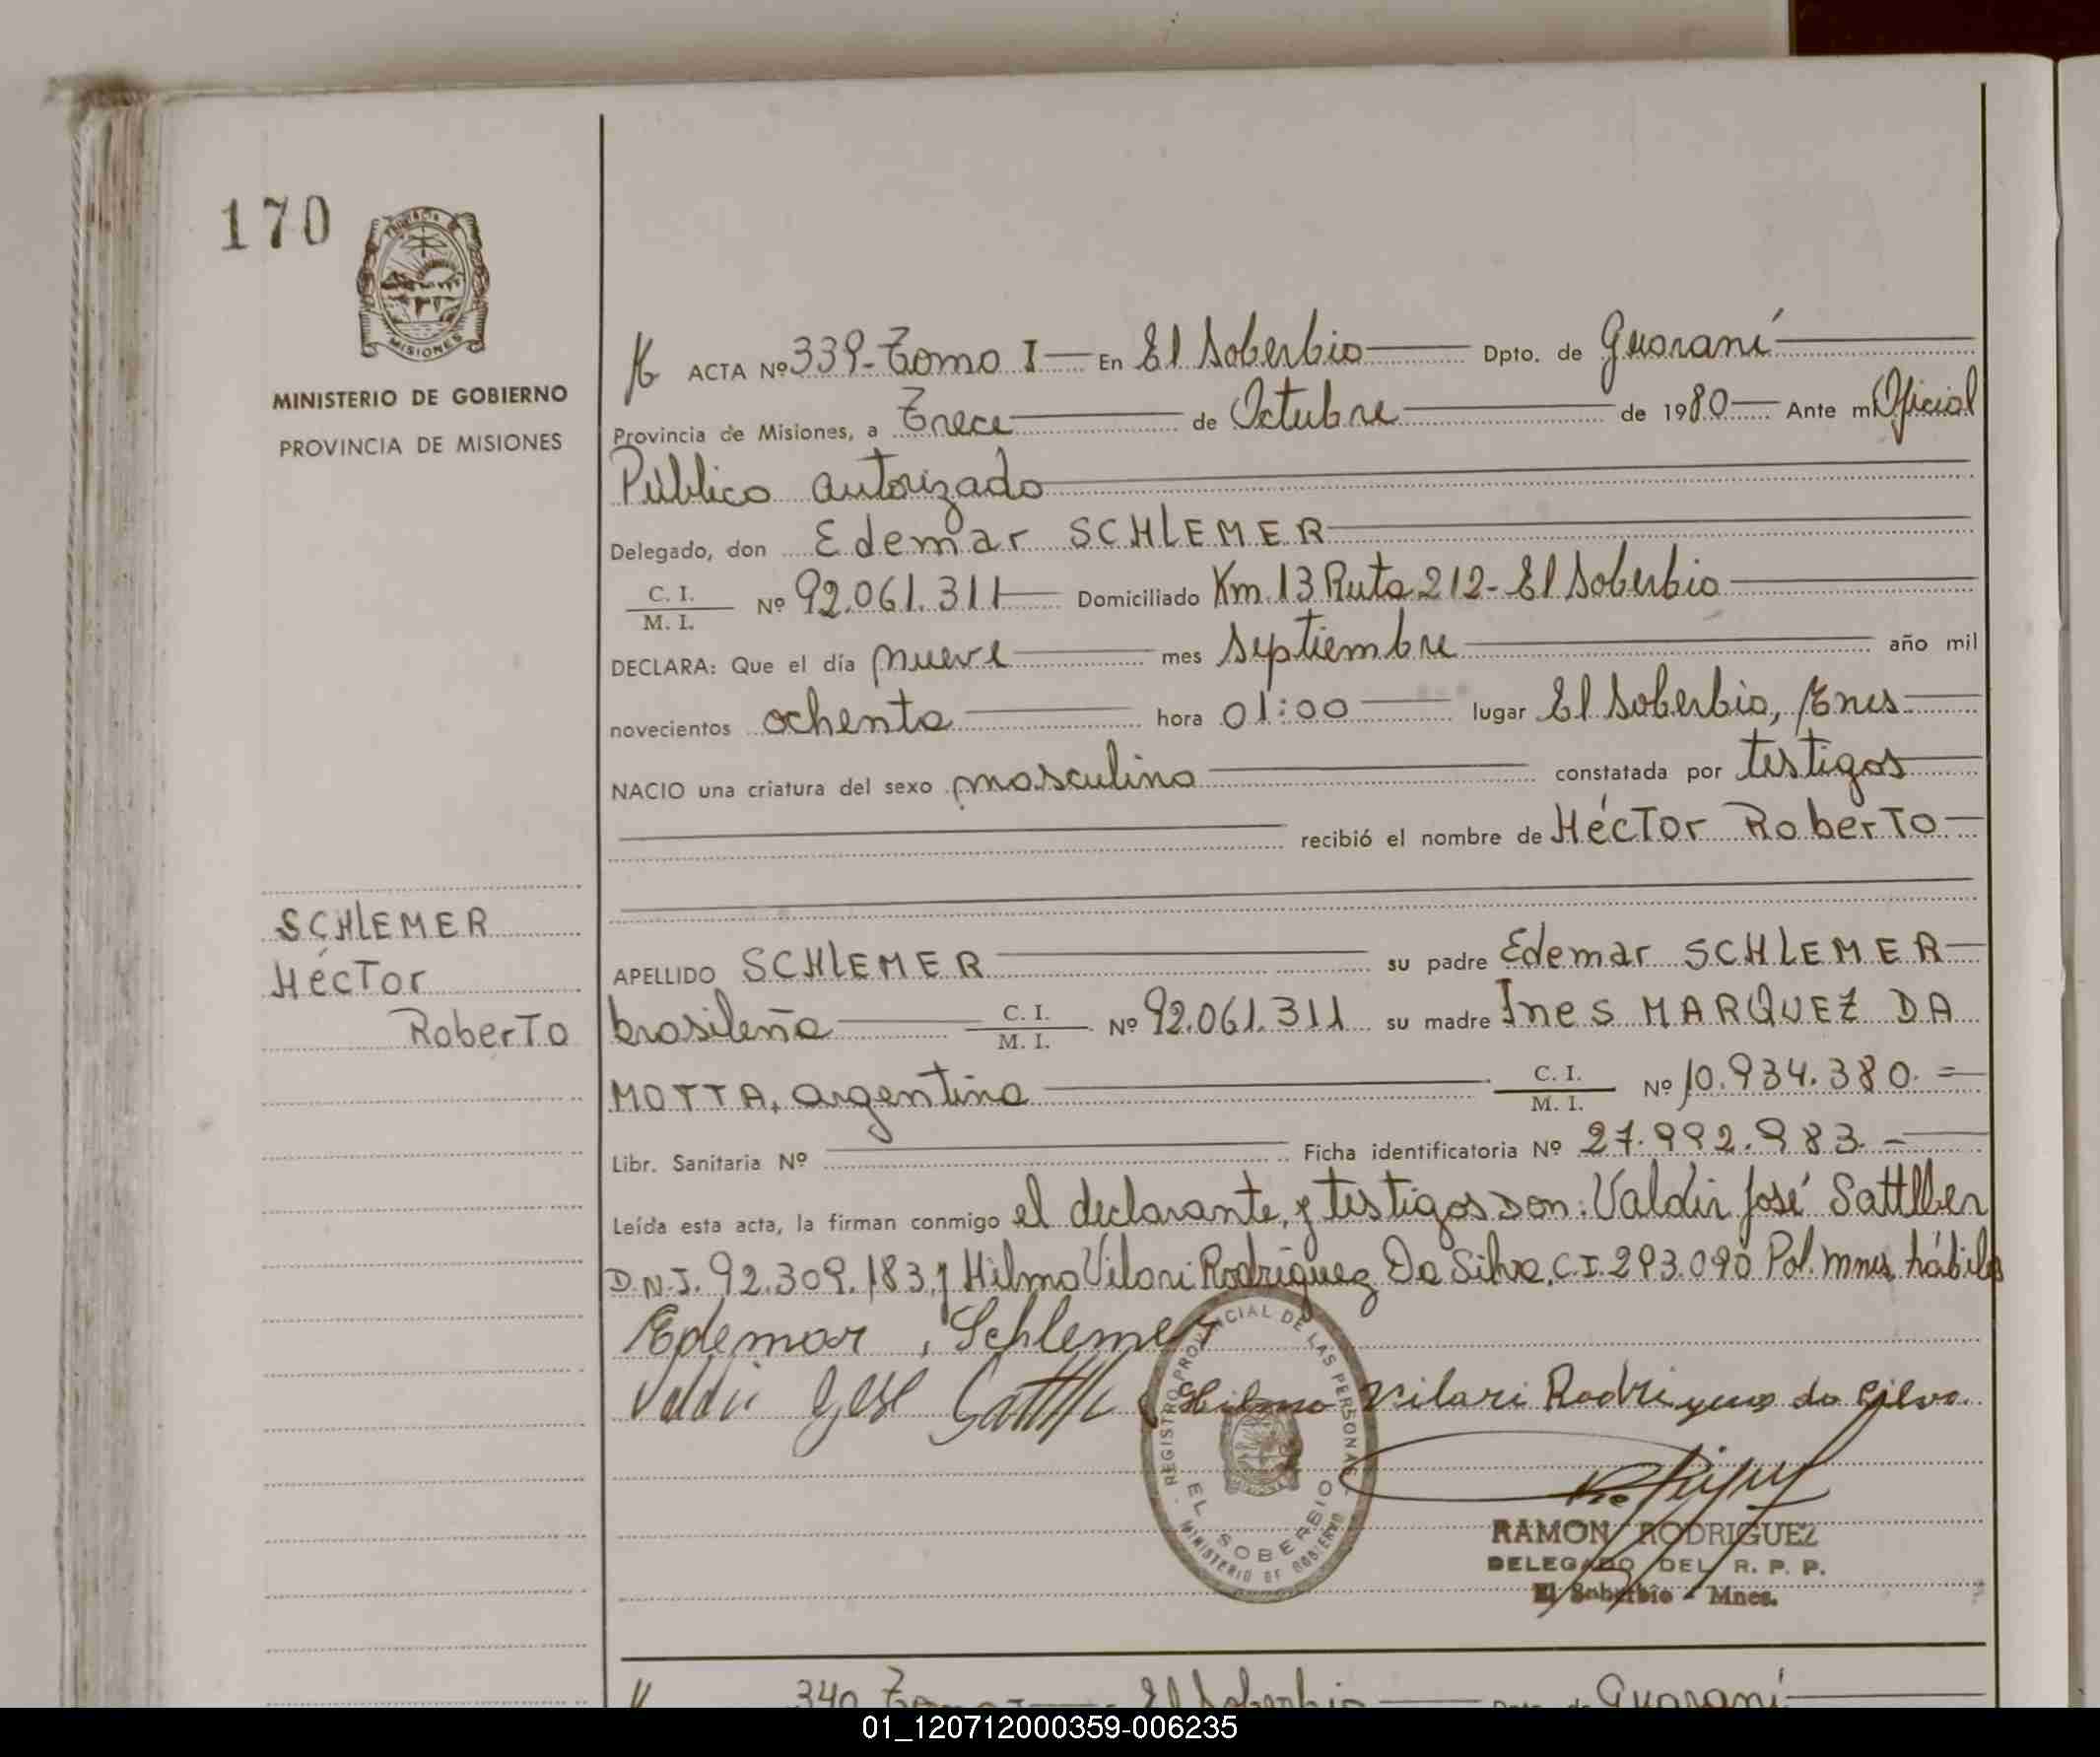 170
PROVINCIA
MISIONES
MINISTERIO DE GOBIERNO
PROVINCIA DE MISIONES
ACTA Nº 339-Tomo I En El Soberbio Dpto. de Guaraní
Provincia de Misiones, a Trece de Octubre de 1980 Ante mi Oficial
Público autorizado
Delegado, don Edemar SCHLEMER
C. I.
M. I. Nº 92.061.311 Domiciliado Km 13 Ruta 212-El Soberbio
DECLARA: Que el día nueve mes septiembre año mil
novecientos ochenta hora 01:00 lugar El Soberbio, Mnes
NACIO una criatura del sexo masculino constatada por testigos
recibió el nombre de Héctor Roberto
SCHLEMER
Héctor
Roberto
APELLIDO SCHLEMER su padre Edemar SCHLEMER
brasileña C. I.
M. I. Nº 92.061.311 su madre Ines MARQUEZ DA
MOTTA, argentina C. I.
M. I. Nº 10.934.380.=
Libr. Sanitaria Nº Ficha identificatoria Nº 27.992.983.-
Leída esta acta, la firman conmigo el declarante, y testigos Don: Valdir José Sattlber
D.N.I. 92.309.183 y Hilmo Vilari Rodríguez Da Silva, C.I. 293.090 Pol. Mnes, hábiles
Edemar, Schlemer
Valdir José Hilmo Vilari Rodriguez da Silva.
REGISTRO PROVINCIAL DE LAS PERSONAS
EL SOBERBIO
MINISTERIO DE GOBIERNO
RAMON RODRIGUEZ
DELEGADO DEL R. P. P.
El Soberbio - Mnes.
340 Tomo I El Soberbio Dpto. de Guaraní
01_120712000359-006235